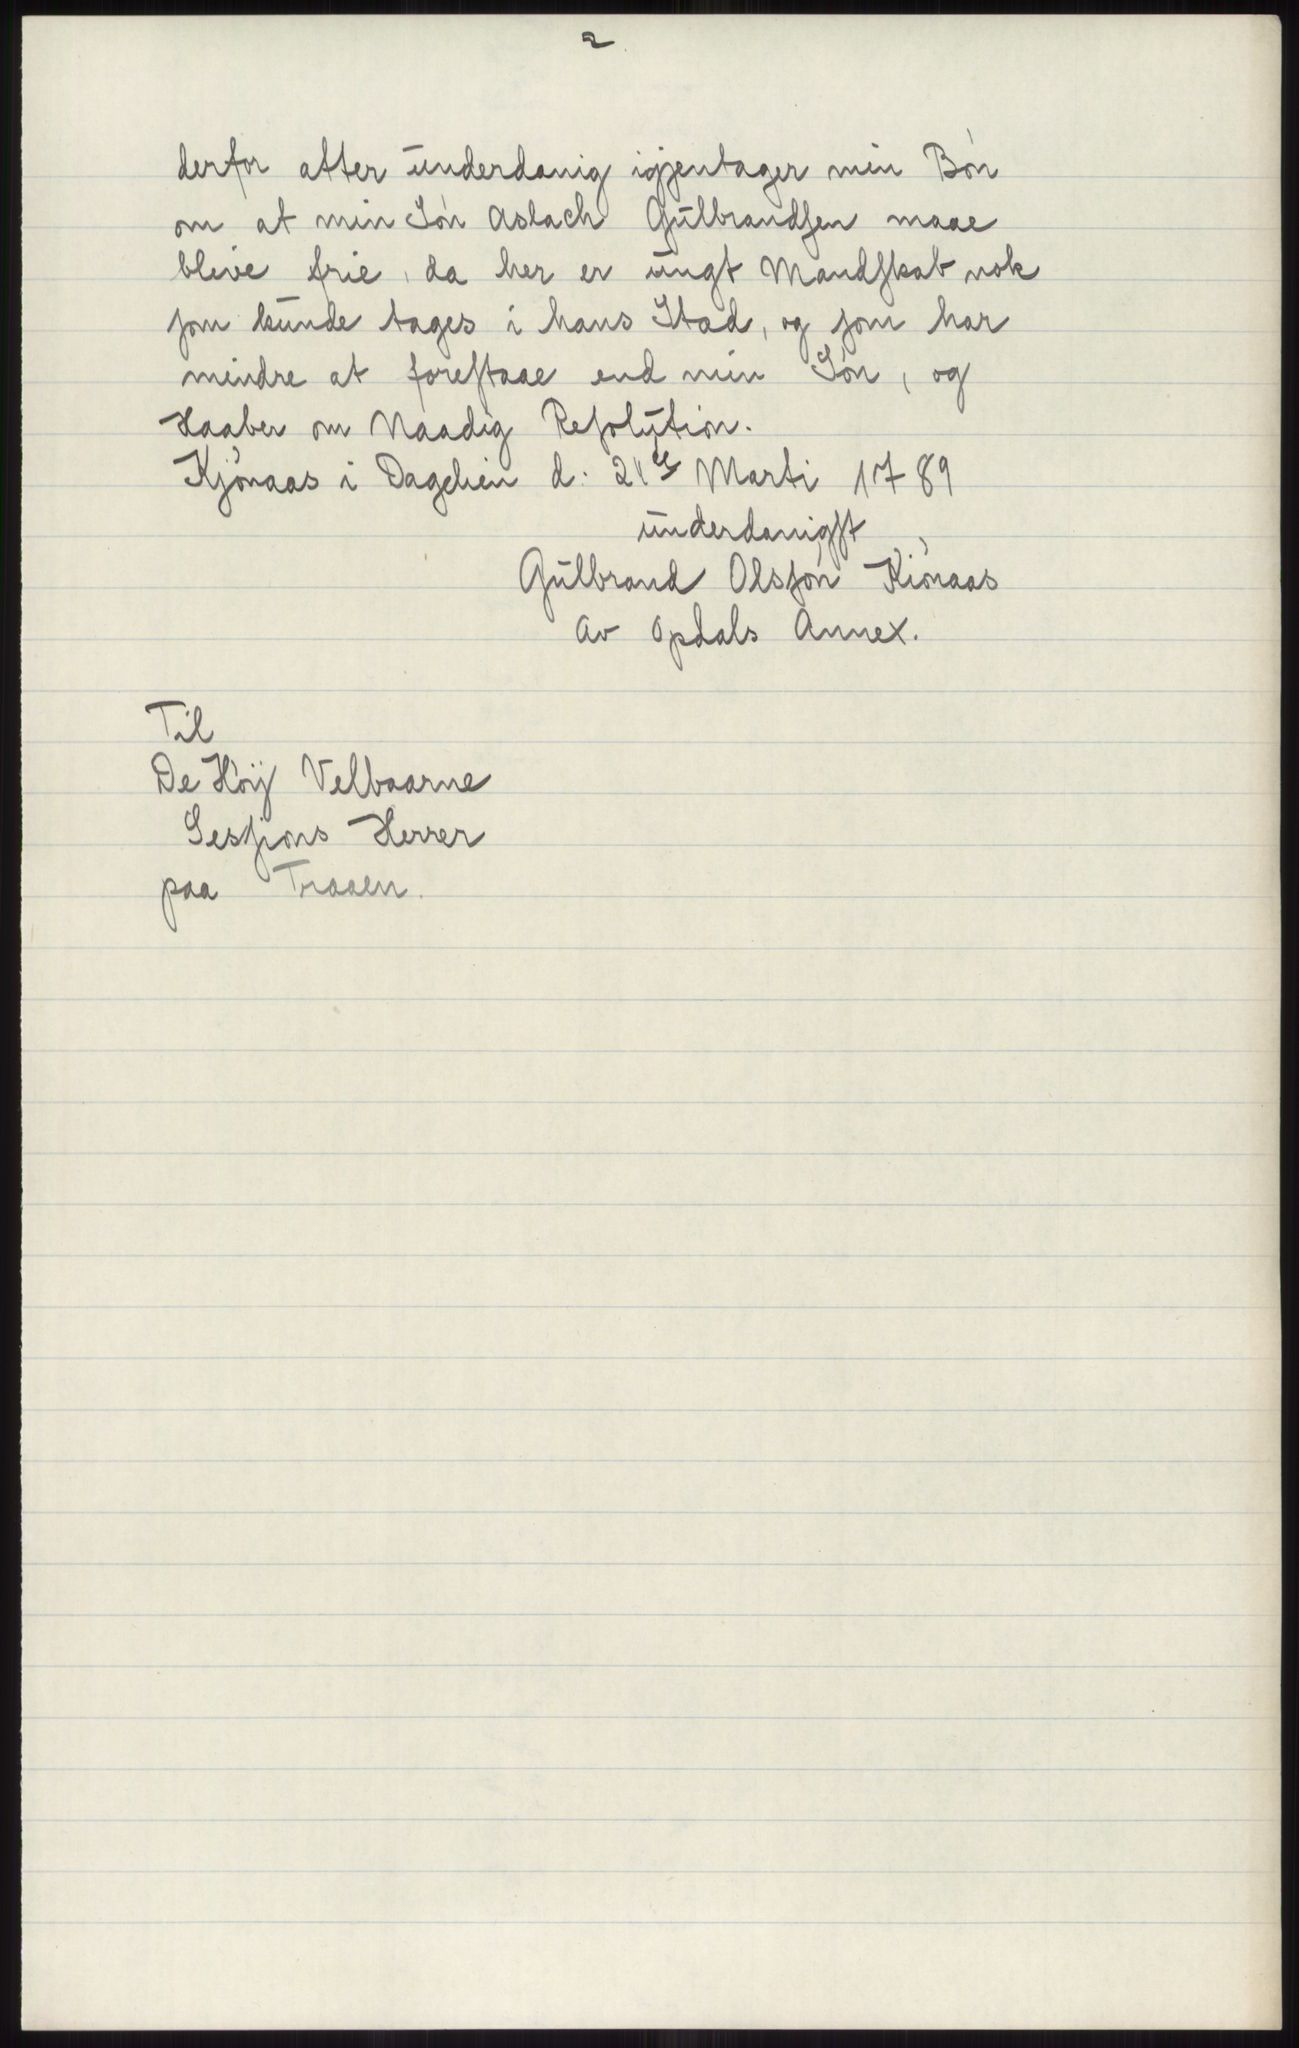 2
derfor atter ünderdanig igjentager min Bón
om at min Són Aslach Gülbrandsen maae
blive frie, da her er üngt Mandskab nok
som künde tages i hans Stad, og som har
mindre at forestaae end min Són, og
Haaber om Naadig Resolution.
Kjónaas i Dagelien d. 21 Marti 1789
ünderdanigst
Gülbrand Olssón Kiónaas
av Opdals Annex.
Til
De Hóij Velbaarne
Sessions Herrer
paa Traaen.